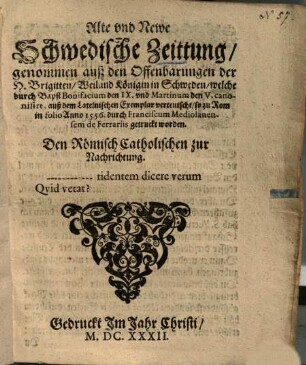 N. 57.
Alte vnd Newe
Schwedische Zeittung/
genommen auß den Offenbarungen der
H. Brigitten/ Weiland Königin in Schweden/ welche
durch Bapst Bonifacium den IX. vnd Martinum den V. cano-
nisirt, auß dem Lateinischen Exemplar verteutscht/ so zu Rom
in folio Anno 1556. durch Franciscum Mediolanen-
sem de Ferrariis getruckt worden.
Den Römisch Catholischen zur
Nachrichtung.
ridentem dicere verum
Qvid vetat?
Gedruckt Im Jahr Christi/
M. DC. XXXII.